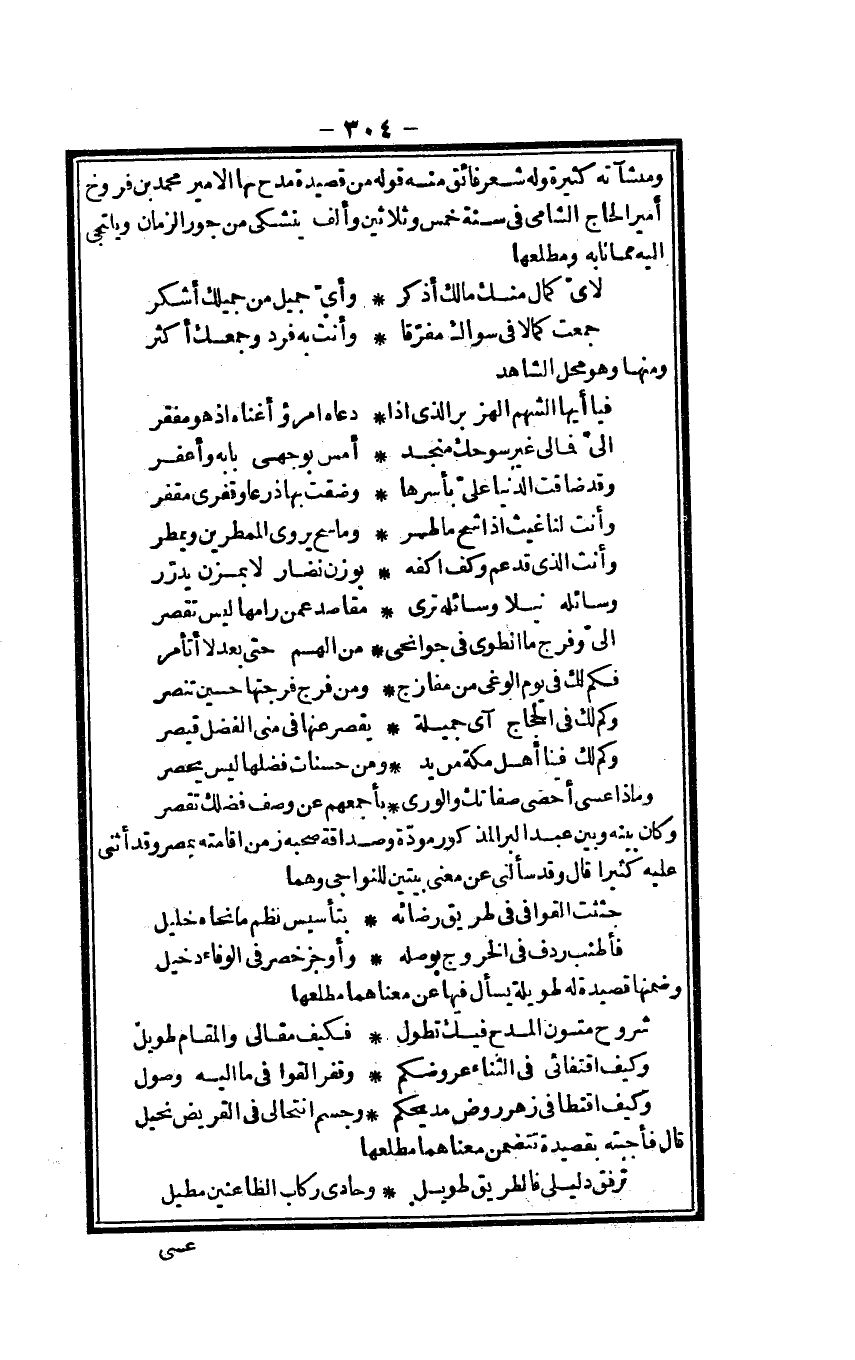 - ٣٠٤ -
ومنشآته كثيرة وله شعر فائق منه قوله من قصيدة مدح بها الامير محمد بن فروخ
أمير الحاج الشامى فى سنة خمس وثلاثين وألف يتشكى من جور الزمان ويلتجى
اليه مما نابه ومطلعها
لاىّ كمال منك مالك أذكر * وأىّ جميل من جميلك أشكر
جمعت كمالا فى سواك مفرّقا * وأنت به فرد وجمعك أكثر
ومنها وهو محل الشاهد
فيا أيها الشهم الهزبر الذى اذا * دعاه امرؤ أغناه اذ هو مفقر
الىّ فمالى غير سوحك منجد * أمس بوجهى بابه وأعفر
وقد ضاقت الدنيا علىّ بأسرها * وضقت بها ذرعا وقفرى مقفر
وأنت لنا غيث اذا شح ماطر * وماسح يروى الممطرين ويمطر
وأنت الذى قد عم وكف اكفه * بوزن نضار لا بمزن يدرّر
وسائله نيلا وسائله ترى * مقاصد عمن رامها ليس تقصر
الىّ وفرج ما انطوى فى جوانحى * من الهم حتى بعد لا أتأمر
فكم لك فى يوم الوغى من مفازج * ومن فرج فرجتها حين تنصر
وكم لك فى الحجاج آى جميلة * يقصر عنها فى منى الفضل قيصر
وكم لك فينا أهل مكة من يد * ومن حسنات فضلها ليس يحصر
وماذا عسى أحصى صفاتك والورى * بأجمعهم عن وصف فضلك تقصر
وكان بينه وبين عبد البر المذكور مودّة وصداقة صحبه زمن اقامته بمصر وقد أثنى
عليه كثيرا قال وقد سألنى عن معنى بيتين للنواجى وهما
جثت القوافى فى طريق رضائه * بتأسيس نظم ما نحاه خليل
فأطنب ردف فى الخروج بوصله * وأوجز خصر فى الوفاء دخيل
وضمنها قصيدة له طويلة يسأل فيها عن معناهما مطلعها
شروح متون المدح فيك تطول * فكيف مقالى والمقام طويل
وكيف اقتفائى فى الثناء عروضكم * وقفر القوافى ما اليه وصول
وكيف اقتطافى زهر روض مديحكم * وجسم انتحالى فى القريض نحيل
قال فأجبته بقصيدة تتضمن معناهما مطلعها
ترفق دليلى فالطريق طويل * وحادى ركاب الظاعنين مطيل
عسى